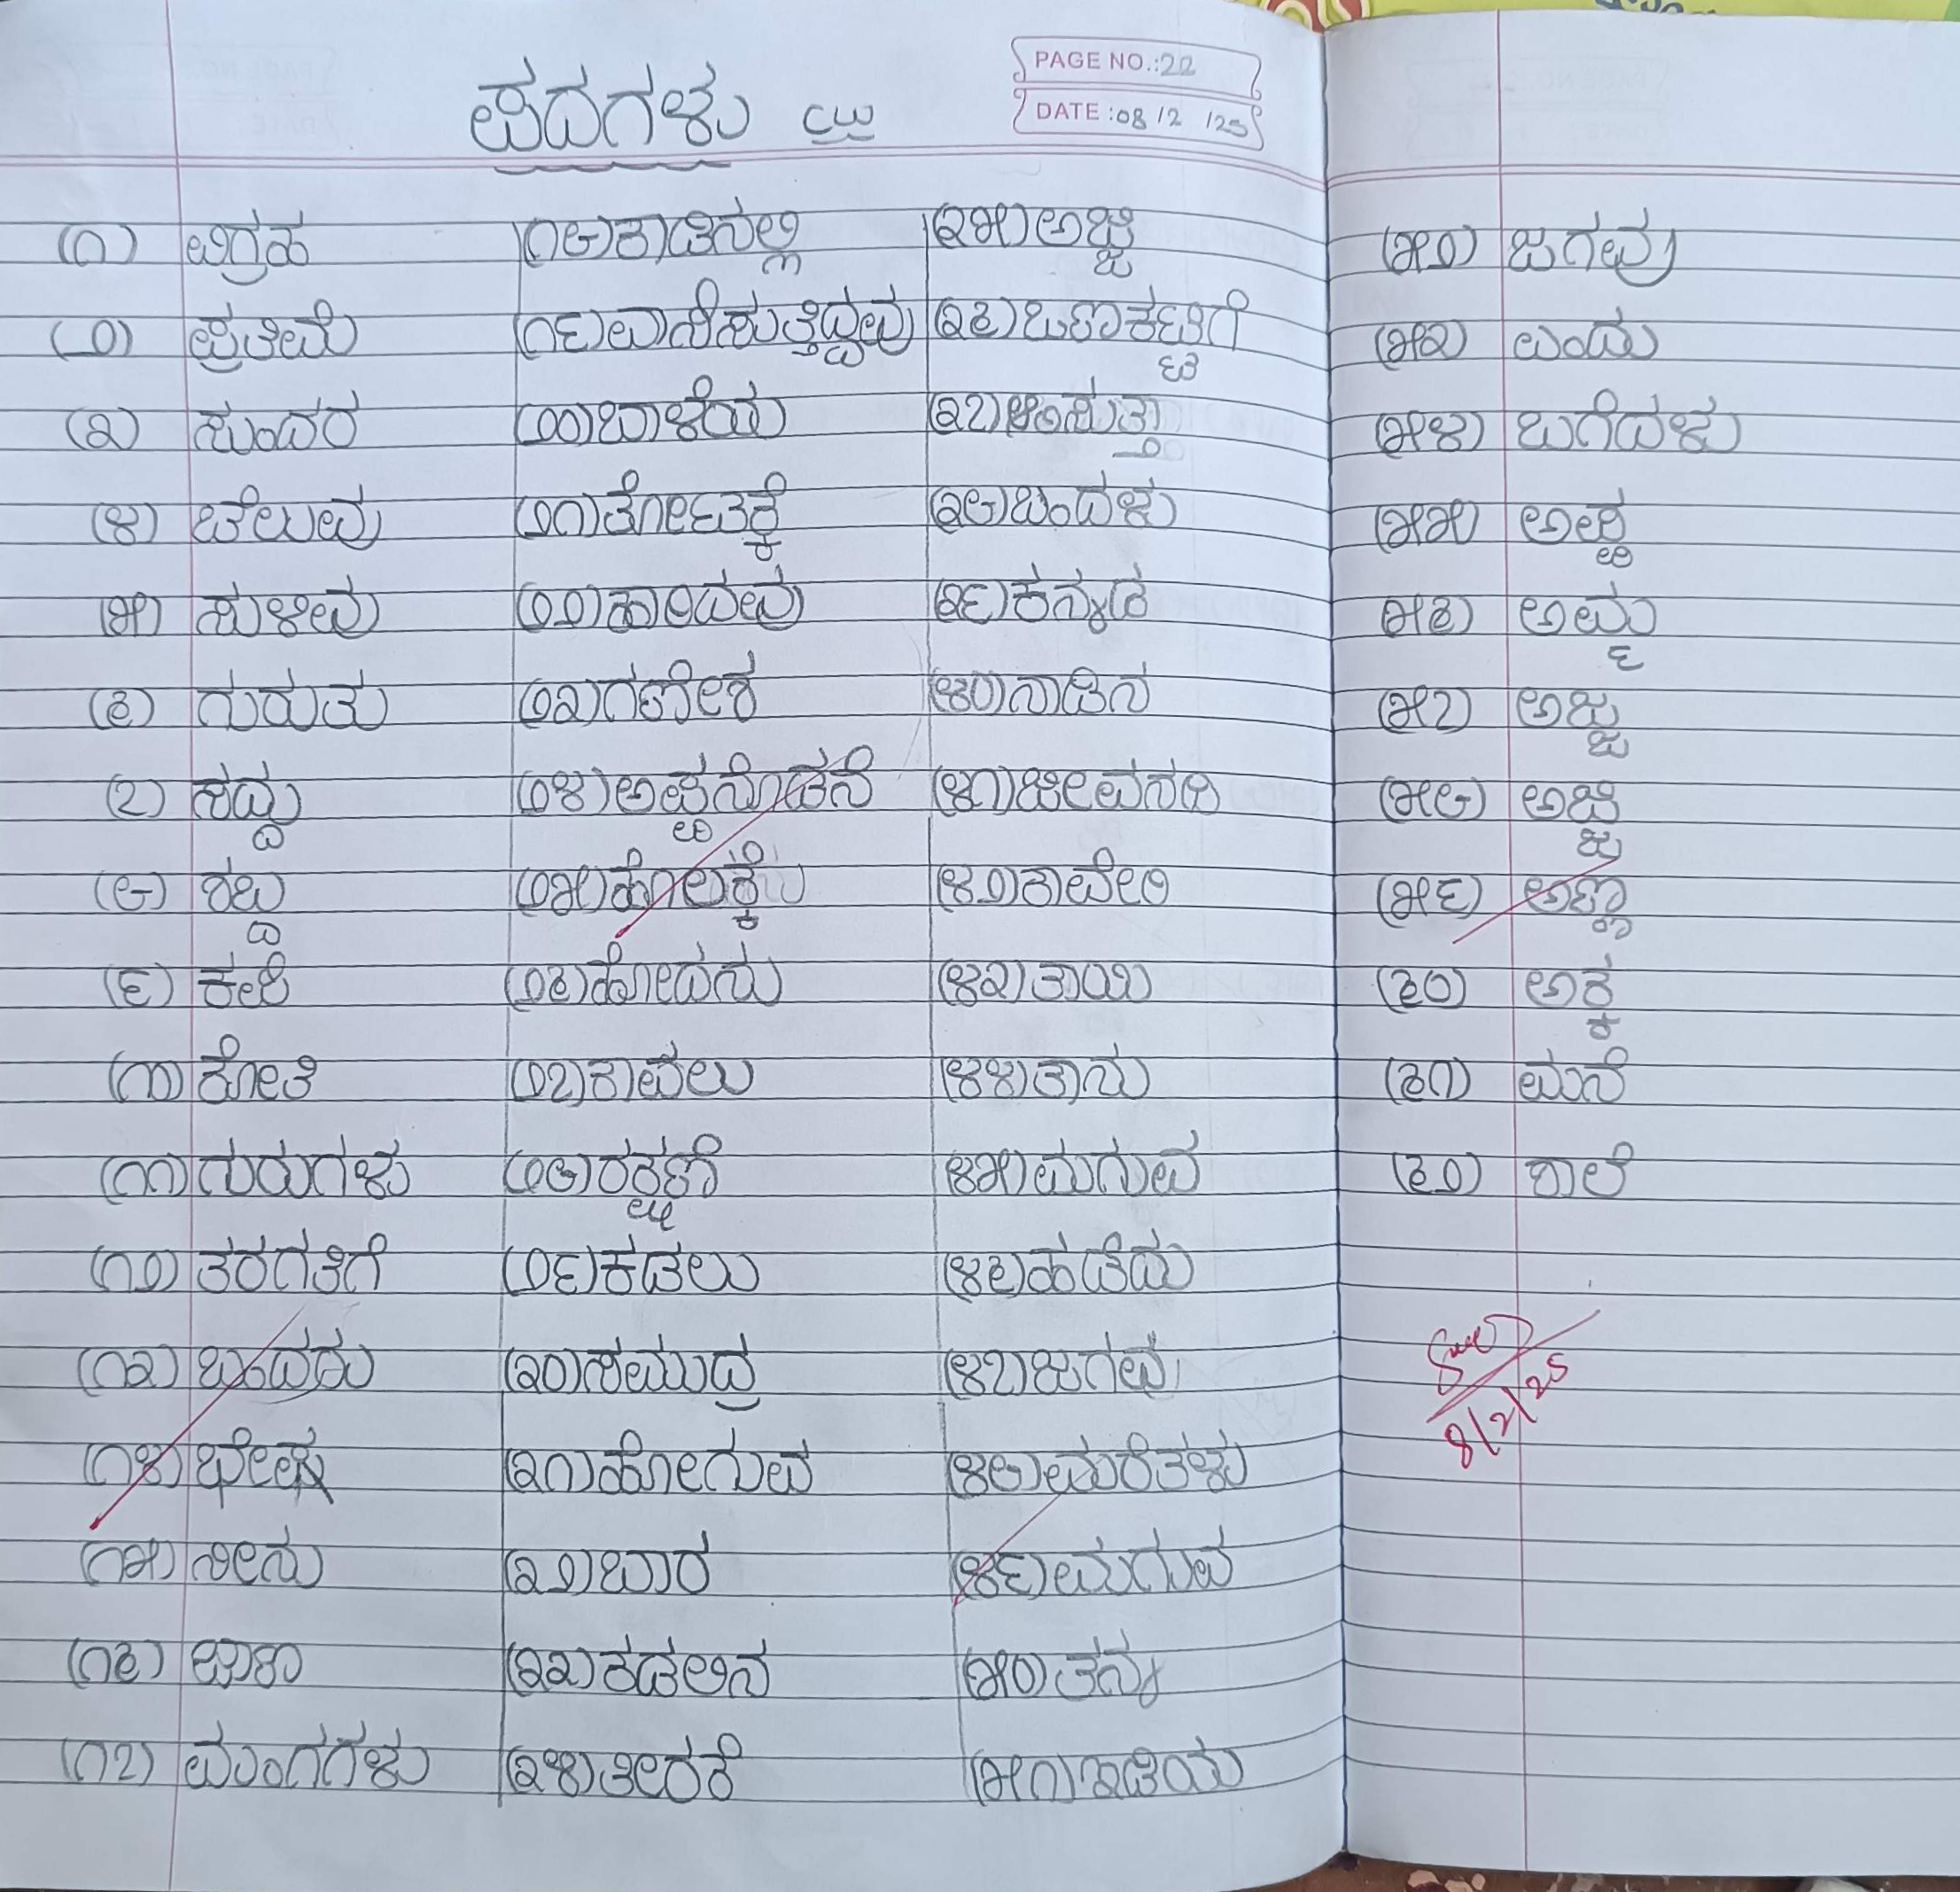 PAGE NO.: 22
DATE : 08 / 2 / 25
ಪದಗಳು CW
(೧) ವಿಗ್ರಹ
(೨) ಪ್ರತಿಮೆ
(೩) ಸುಂದರ
(೪) ಚೆಲುವು
(೫) ಸುಳಿವು
(೬) ಗುರುತು
(೭) ಸದ್ದು
(೮) ಶಬ್ದ
(೯) ಕಪಿ
(೧೦) ಕೋತಿ
(೧೧) ಗುರುಗಳು
(೧೨) ತರಗತಿಗೆ
(೧೩) ಬಂದರು
(೧೪)
(೧೫) ನೀನು
(೧೬)
(೧೭) ಮಂಗಗಳು
(೧೮) ಕಾಡಿನಲ್ಲಿ
(೧೯) ವಾಸಿಸುತ್ತಿದ್ದವು
(೨೦) ಬಾಳೆಯ
(೨೧) ತೋಟಕ್ಕೆ
(೨೨) ಹಾರಿದವು
(೨೩) ಗಣೇಶ
(೨೪) ಅಪ್ಪನೊಡನೆ
(೨೫) ಹೊಲಕ್ಕೆ
(೨೬) ಹೋದನು
(೨೭) ಕಾವಲು
(೨೮) ರಕ್ಷಣೆ
(೨೯) ಕಡಲು
(೩೦) ಸಮುದ್ರ
(೩೧) ಹೋಗುವ
(೩೨) ಬಾರ
(೩೩) ಕಡಲಿನ
(೩೪) ತೀರಕೆ
(೩೫) ಅಜ್ಜಿ
(೩೬)
(೩೭)
(೩೮) ಬಂದಳು
(೩೯) ಕನ್ನಡ
(೪೦) ನಾಡಿನ
(೪೧) ಜೀವನದಿ
(೪೨) ಕಾವೇರಿ
(೪೩) ತಾಯಿ
(೪೪) ತಾನು
(೪೫) ಮಗುವ
(೪೬) ಹಡೆದು
(೪೭) ಜಗವ
(೪೮) ಮರೆತಳು
(೪೯) ಮಗುವ
(೫೦) ತನ್ನ
(೫೧)
(೫೨) ಜಗವು
(೫೩) ಎಂದು
(೫೪) ಬಗೆದಳು
(೫೫) ಅಪ್ಪ
(೫೬) ಅಮ್ಮ
(೫೭) ಅಜ್ಜ
(೫೮) ಅಜ್ಜಿ
(೫೯) ಅಣ್ಣ
(೬೦) ಅಕ್ಕ
(೬೧) ಮನೆ
(೬೨) ಶಾಲೆ
8/2/25